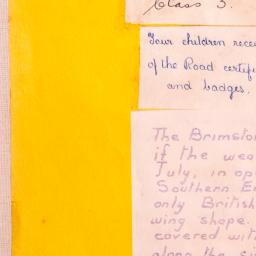 Class 3.
Four children rece
of the Road certifi
and badges.
The Brimsto
if the wea
July, in op
Southern En
only British
wing shape.
covered wit
along the s